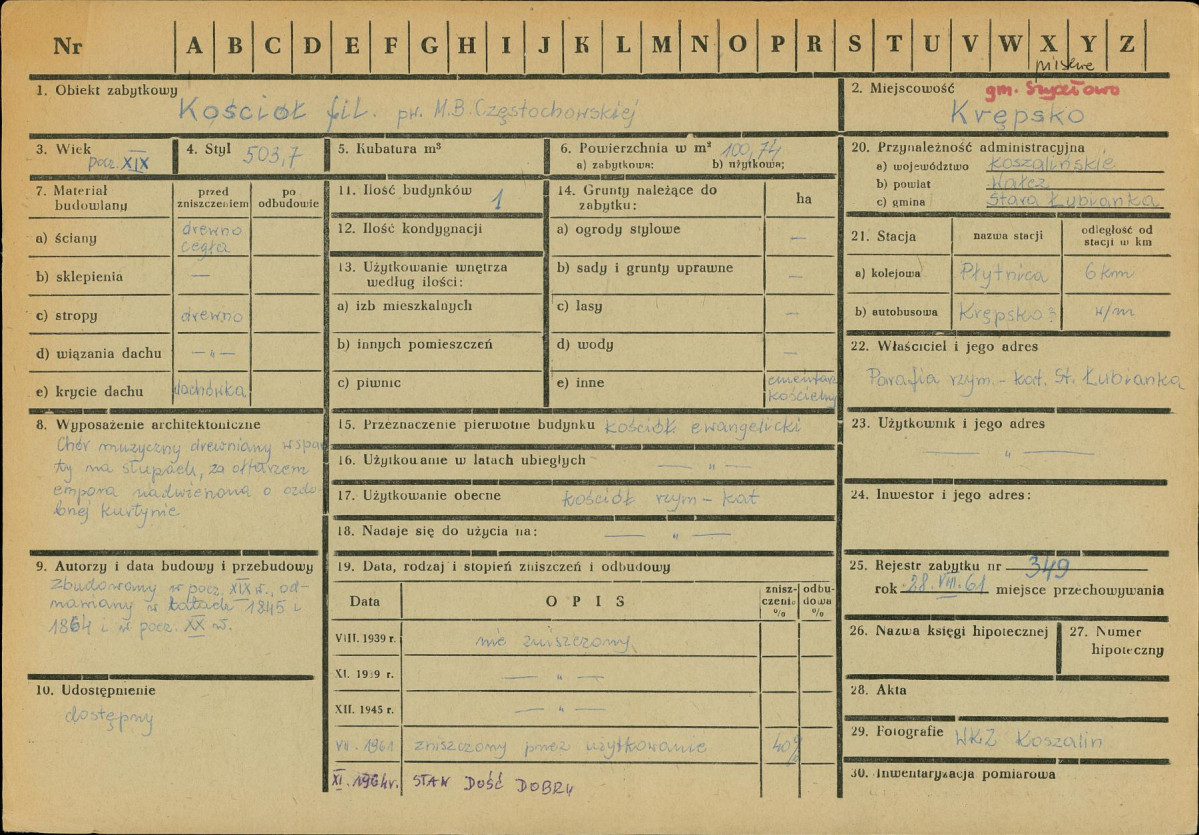 Nr A B C D E F G H I J K L M N O P R S T U V W X Y Z
pilskie
1. Obiekt zabytkowy
Kościół fil. pw. M.B. Częstochowskiej
2. Miejscowość gm. Szydłowo
Krępsko
3. Wiek
pocz. XIX
4. Styl 503,7
5. Kubatura m³
6. Powierzchnia w m² 100,74
a) zabytkowa: b) użytkowa:
20. Przynależność administracyjna
a) województwo koszalińskie
b) powiat Wałcz
c) gmina Stara Łubianka
7. Materiał budowlany
przed zniszczeniem
po odbudowie
a) ściany drewno cegła
b) sklepienia —
c) stropy drewno
d) wiązania dachu — „ —
e) krycie dachu dachówka
11. Ilość budynków 1
12. Ilość kondygnacji
13. Użytkowanie wnętrza
według ilości:
a) izb mieszkalnych
b) innych pomieszczeń
c) piwnic
14. Grunty należące do
zabytku:
ha
a) ogrody stylowe —
b) sady i grunty uprawne —
c) lasy —
d) wody —
e) inne cmentarz kościelny
21. Stacja
nazwa stacji
odległość od
stacji w km
a) kolejowa Płytnica 6 km
b) autobusowa Krępsko w/m
22. Właściciel i jego adres
Parafia rzym.-kat. St. Łubianka
8. Wyposażenie architektoniczne
Chór muzyczny drewniany wspar
ty na słupach, za ołtarzem
empora nadwieszona o ozdo
bnej kurtynie
15. Przeznaczenie pierwotne budynku kościół ewangelicki
16. Użytkowanie w latach ubiegłych — „ —
17. Użytkowanie obecne kościół rzym-kat
18. Nadaje się do użycia na: — „ —
23. Użytkownik i jego adres
— „ —
24. Inwestor i jego adres:
9. Autorzy i data budowy i przebudowy
Zbudowany w pocz. XIX w., od-
nawiany w latach 1845 i
1864 i w pocz. XX w.
10. Udostępnienie
dostępny
19. Data, rodzaj i stopień zniszczeń i odbudowy
Data
OPIS
znisz-
czenia
%
odbu-
dowa
%
VIII. 1939 r. nie zniszczony
XI. 1939 r. — „ —
XII. 1945 r. — „ —
VII. 1961 zniszczony przez użytkowanie 40%
XI. 1964r. STAN DOŚĆ DOBRY
25. Rejestr zabytku nr 349
rok 28.VIII.61 miejsce przechowywania
26. Nazwa księgi hipotecznej
27. Numer
hipoteczny
28. Akta
29. Fotografie WKZ Koszalin
30. Inwentaryzacja pomiarowa